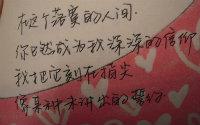 在这个落寞的人间.
你已然成为我深深的信仰
我把它刻在指尖
像来种未讲出的誓约